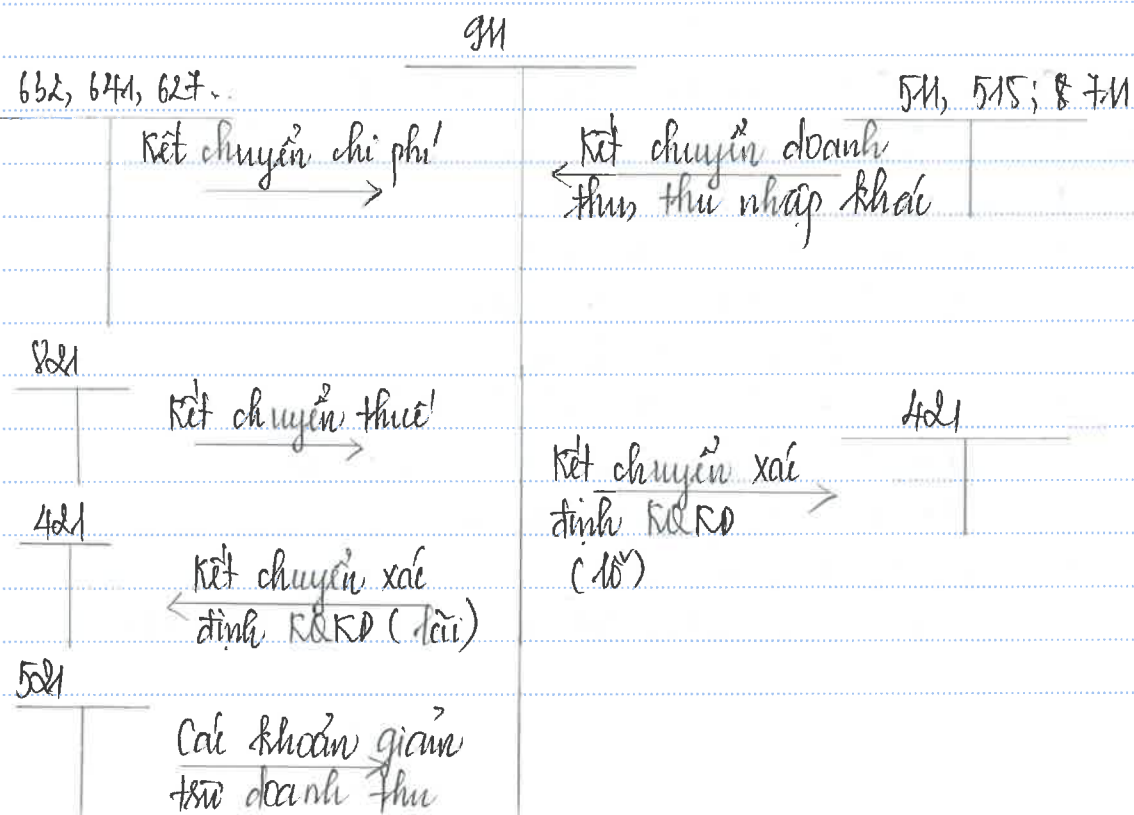 911
632, 641, 627..
511, 515; 711
Kết chuyển chi phí
Kết chuyển doanh
thu, thu nhập khác
821
Kết chuyển thuế
421
Kết chuyển xác
định KQKD
(lỗ)
421
Kết chuyển xác
định KQKD (lãi)
521
Các khoản giảm
trừ doanh thu